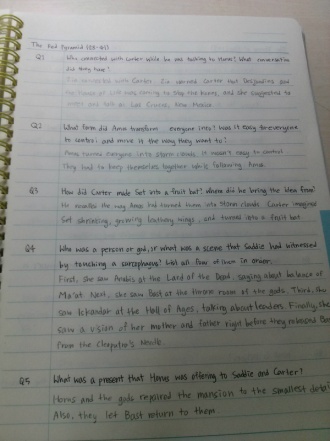 The Red Pyramid
Q1 Who connected with Carter while he was talking to Horus? What conversation
did they have?
Zia connected with Carter. Zia warned Carter that Desjardins and
the House of Life was coming to stop the Kanes, and she suggested to
meet at Las Cruces, New Mexico
Q2 What form did Amos transform everyone into? Was it easy for everyone
to control and move it the way they want to?
Amos turned everyone into storm clouds. It wasn't easy to control.
They had to keep themselves together while following Amos.
Q3 How did Carter make Set into a fruit bat? Where did he bring the idea from?
He recalled the way Amos had turned them into storm clouds. Carter imagined
Set shrinking, growing leathery wings, and turned into a fruit bat.
Q4 Who was a person or god, or what was a scene that Saddie had witnessed
by touching a sarcophagus? List all four of them in order.
First, she saw Anubis at the Land of the Dead, saying about balance of
Ma'at. Next, she saw Bast at the throne room of the gods. Third, she
saw Iskandar at the Hall of Ages, talking about leaders. Finally, she
saw a vision of her mother and father right before they released Bast
from the Cleopatra's Needle.
Q5 What was a present that Horus was offering to Saddie and Carter?
Horus and the gods repaired the mansion to the smallest detail.
Also, they let Bast return to them.